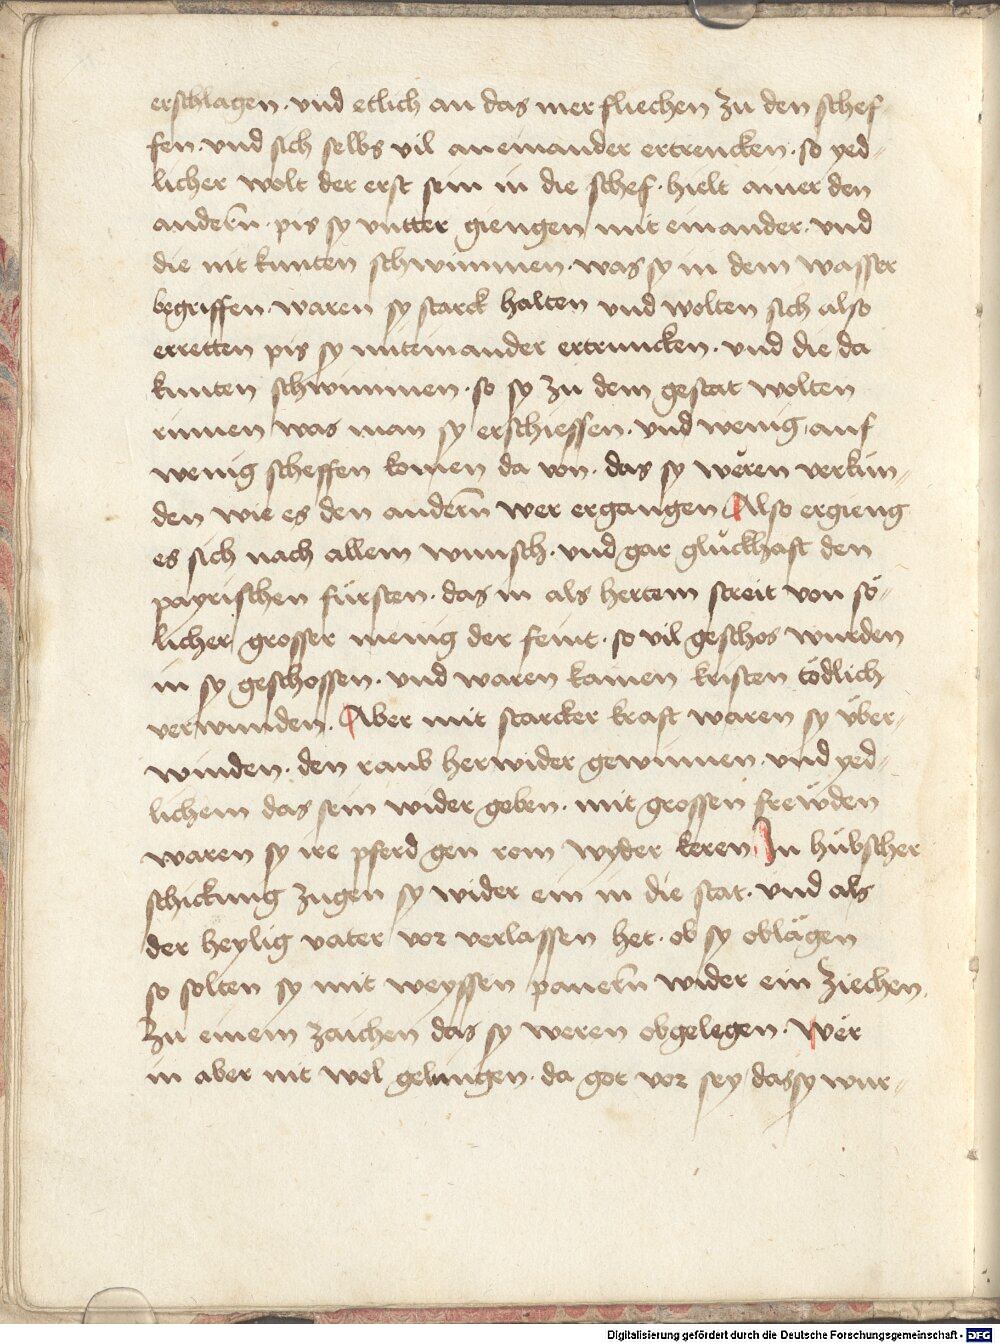 erschlagen · vnd etlich an das mer fliechen zu den schef
fen · vnd sich selbs vil aneinander ertrencken · so yed-
licher wolt der erst sein in die schef · hielt ainer den
andern̄ · pis sy vntter giengen mit einander · vnd
die nit kunten schwimmen · was sy in dem wasser
begriffen · waren sy starck halten vnd wolten sich also
erretten pis sy miteinander ertruncken · vnd die da
kunten schwimmen · so sy zu dem gestat wolten
rinnen was man sy erschiessen · vnd wenig auf
wenig scheffen komen da von · das sy weren verkün-
den wie es den andern̄ wer ergangen Also ergieng
es sich nach allem wunsch · vnd gar glückhaft den
payrischen fürsten · das in als hertem streit von sö-
licher grosser menig der feint · so vil geschos wurden
in sy geschossen · vnd waren kainen kristen tödlich
verwunden . Aber mit starcker kraft waren sy über-
winden · den raub herwider gewinnen · vnd yed-
lichem das sein wider geben · mit grossen frewden
waren sy ire pferd gen rom wyder keren In hübscher
schickung zugen sy wider ein in die stat · vnd als
der heylig vater vor verlassen het · ob sy oblägen
so solten sy mit weyssen panern̄ wider ein ziechen.
Zu einem zaichen das sy weren obgelegen · Wer
in aber nit wol gelungen · da got vor sey / das sy wur-
Digitalisierung gefördert durch die Deutsche Forschungsgemeinschaft - DFG